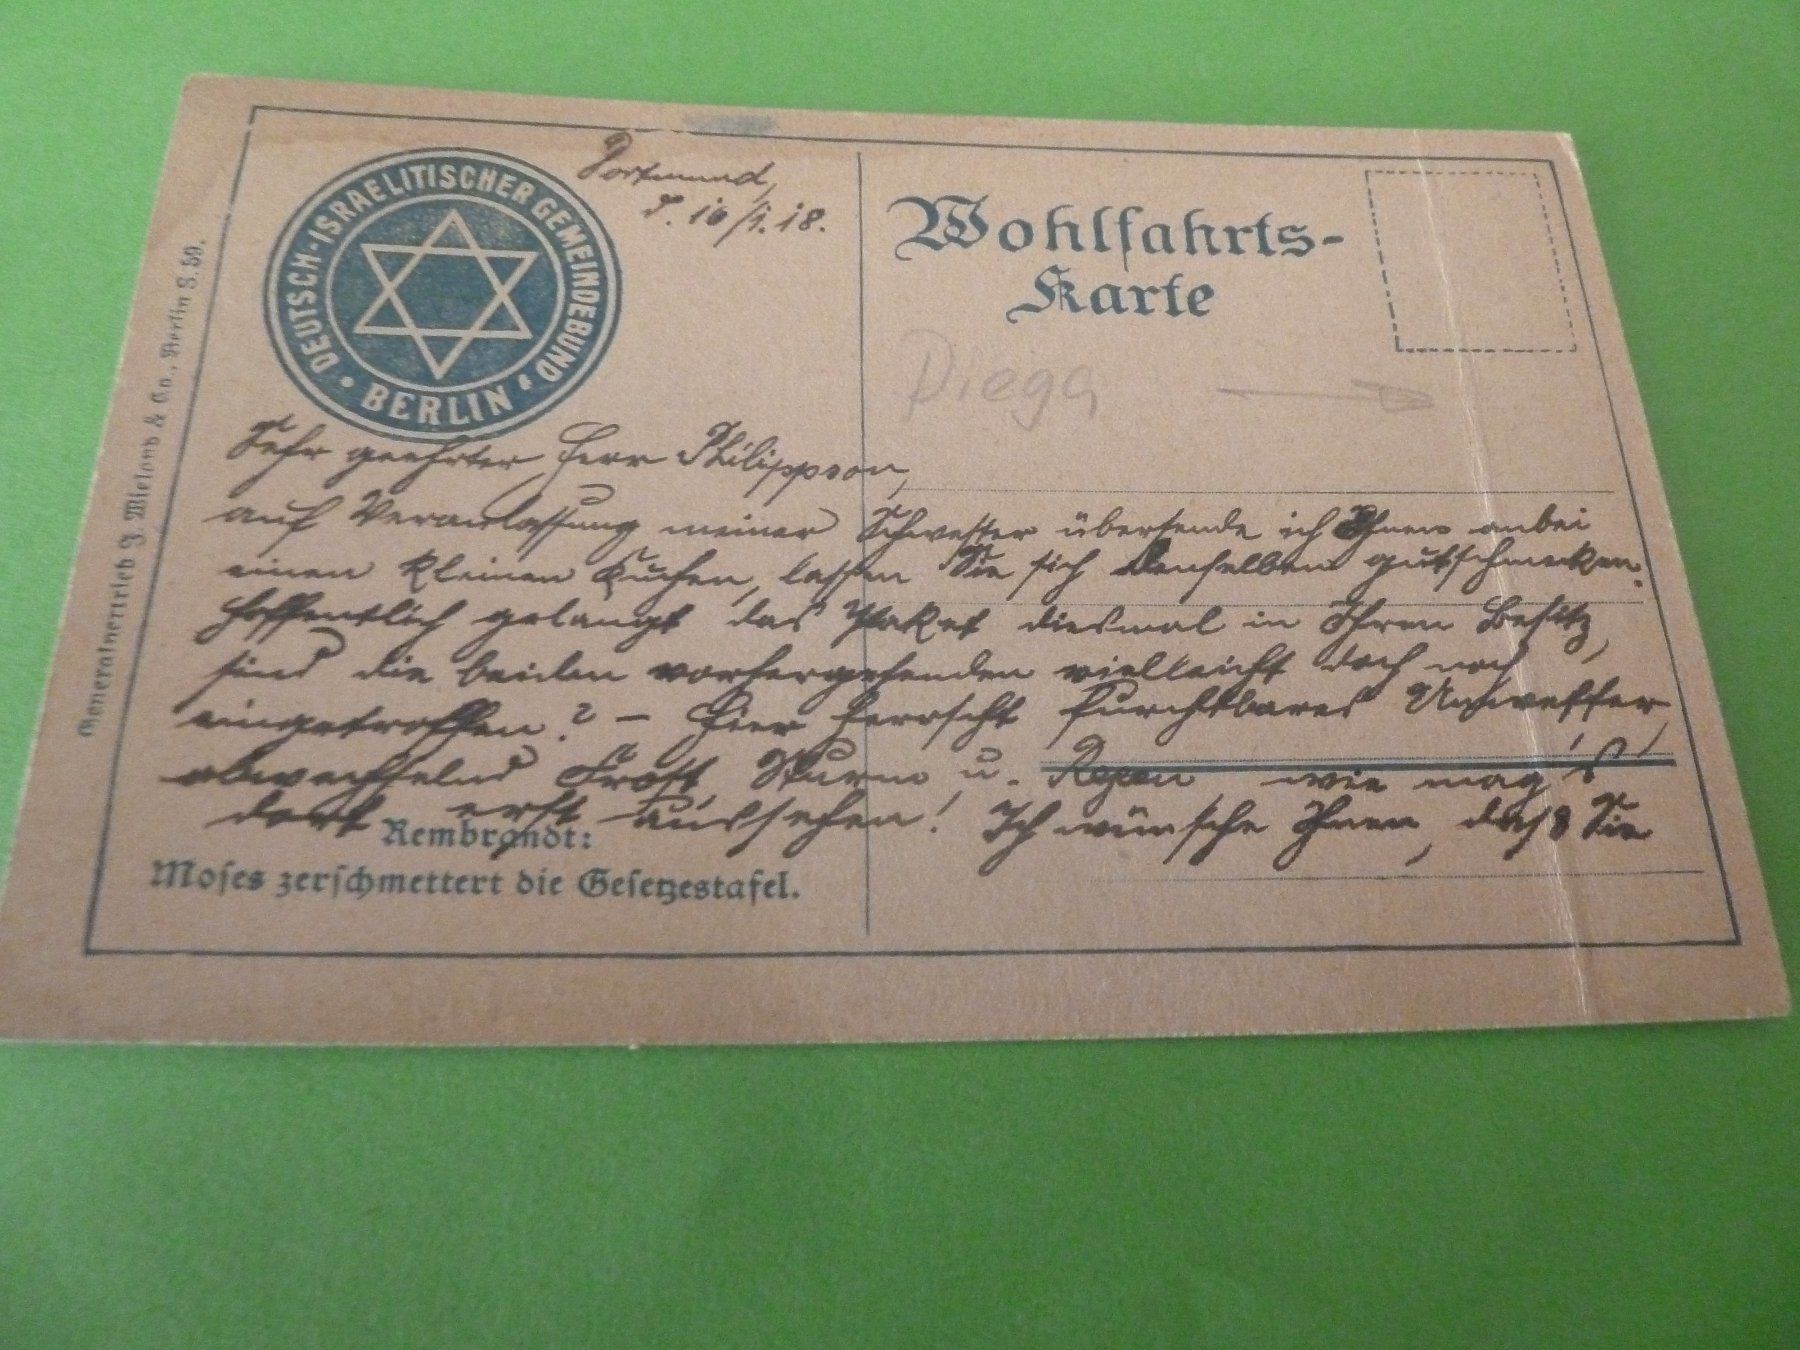 DEUTSCH-ISRAELITISCHER GEMEINDEBUND
• BERLIN •
Dortmund,
d. 16/1.18.
Wohlfahrts-
Karte
Diega
Generalvertrieb J. Wieland & Co., Berlin S. 59.
Sehr geehrter Herr Philippson,
auf Veranlassung meiner Schwester übersende ich Ihnen anbei
einen kleinen Kuchen, lassen Sie sich denselben gutschmecken.
Hoffentlich gelangt das Paket diesmal in Ihren Besitz,
sind die beiden vorhergehenden vielleicht doch noch
eingetroffen? – Hier herrscht furchtbares Unwetter,
abwechselnd Frost, Sturm u. Regen wie mag's
dort erst aussehen! Ich wünsche Ihnen, dass Sie
Rembrandt:
Moses zerschmettert die Gesetzestafel.